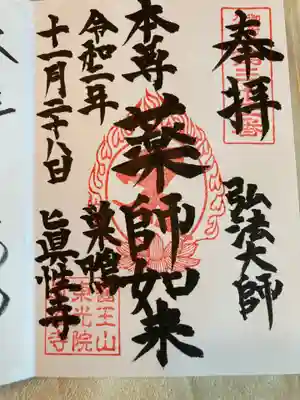 奉拝
弘法大師
本尊 薬師如来
巣鴨
令和二年
十一月二十八日
眞性寺
醫王山
東光院